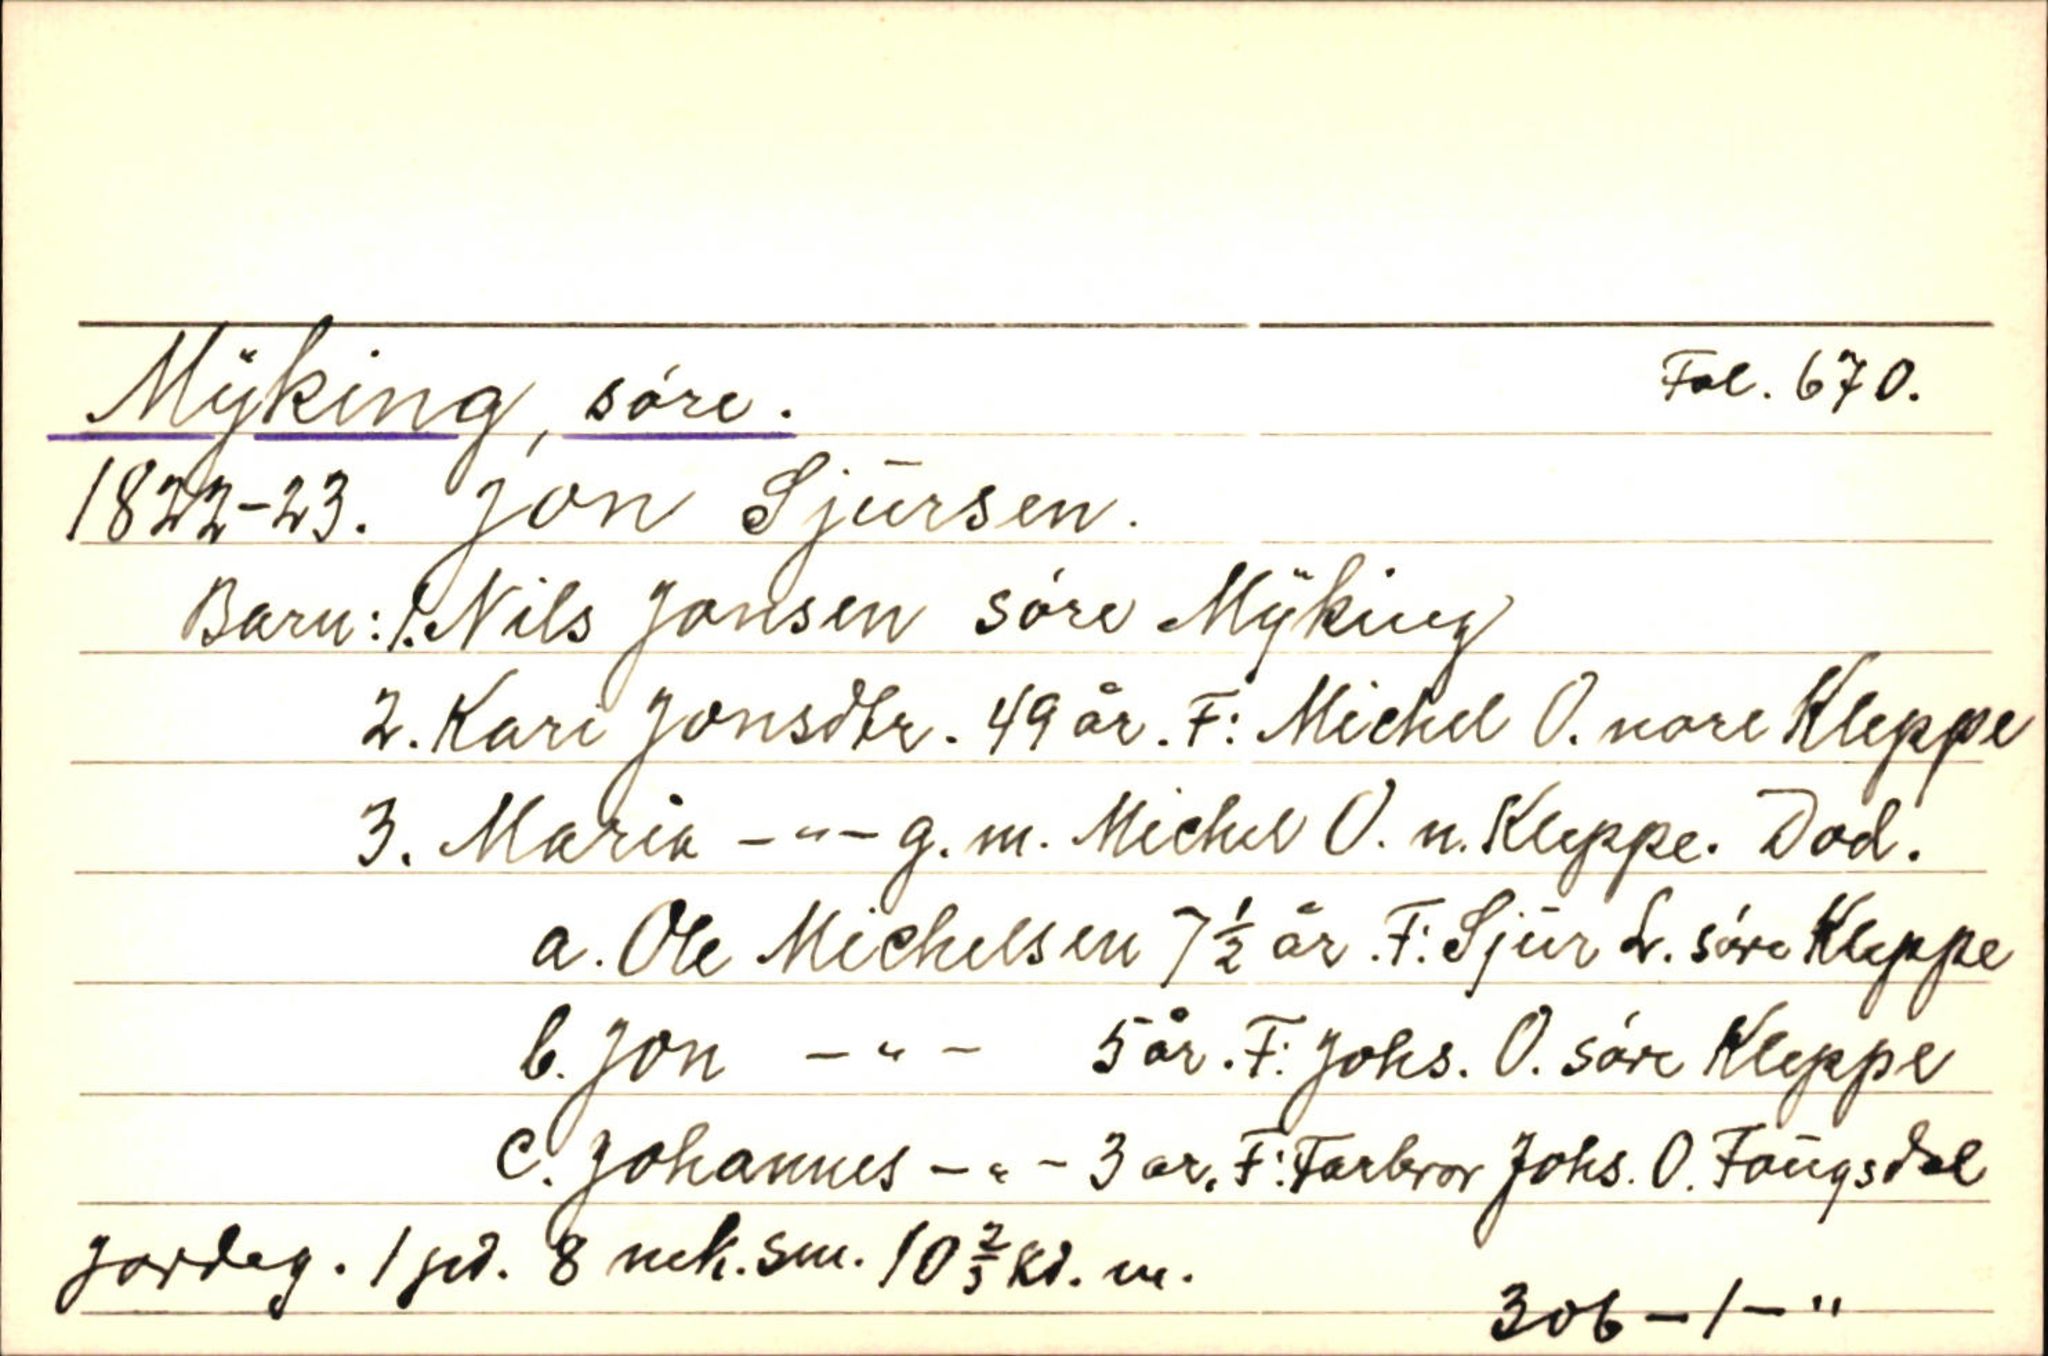 Mÿking, söre. Fol. 670.
1822-23. Jon Sjūrsen.
Barn: 1. Nils Jonsen söre Mÿking
2. Kari Jonsdtr. 49 år. F: Michel O. nore Kleppe
3. Maria -"- g. m. Michel O. n. Kleppe. Död.
a. Ole Michelsen 7 1/2 år. F: Sjūr L. söre Kleppe
b. Jon -"- 5 år. F: Johs. O. söre Kleppe
c. Johannes -"- 3 år. F: Farbror Johs. O. Foūgsdal
Jordeg. 1 pd. 8 mk. sm. 10 2/3 kd. m.
306-1-"